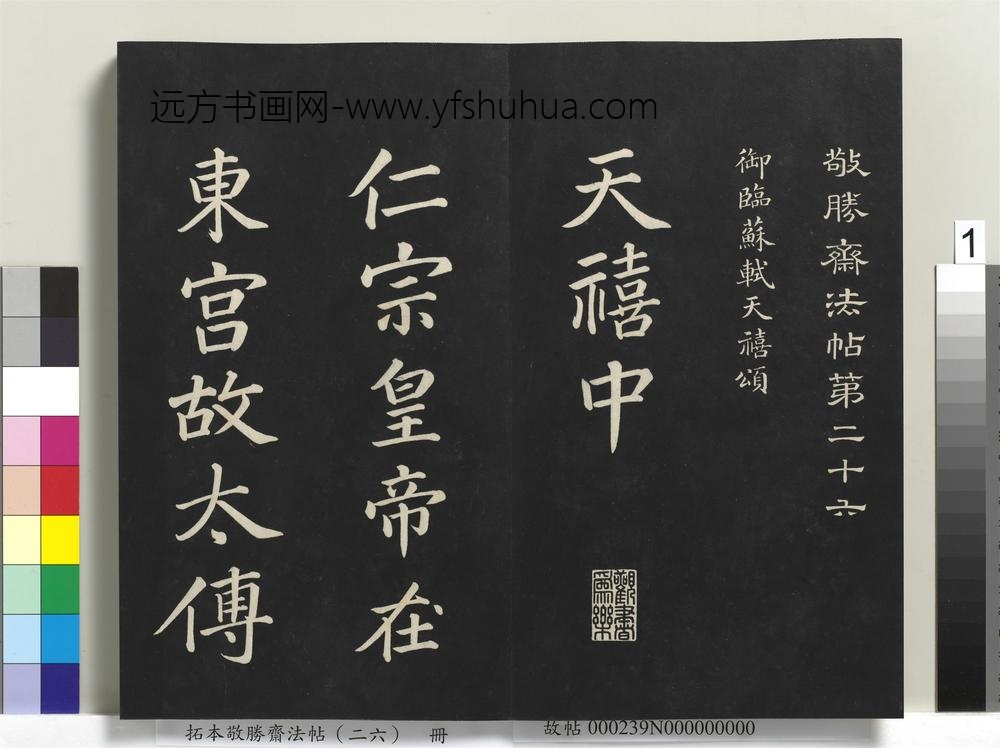 远方书画网-www.yfshuhua.com
敬勝齋法帖第二十六
御臨蘇軾天禧頌
天禧中
仁宗皇帝在
東宮故太傅
觀書為樂
1
拓本敬勝齋法帖（二六） 冊
故帖 000239N000000000